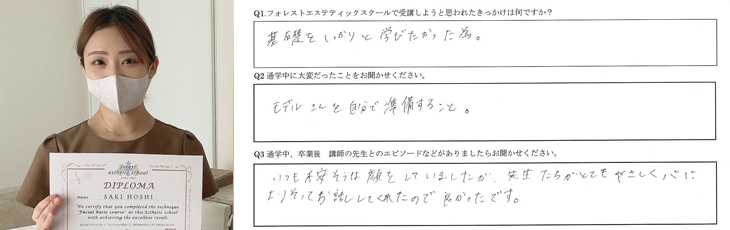 forest
esthetic school
DIPLOMA
Name: SAKI HOSHI
We certify that you completed the technique
"Facial Basic course" at this Esthetic school
with achieving the excellent result.
Q1.フォレストエステティックスクールで受講しようと思われたきっかけは何ですか?
基礎をしっかりと学びたかった為。
Q2 通学中に大変だったことをお聞かせください。
モデルさんを自分で準備すること。
Q3 通学中、卒業後 講師の先生とのエピソードなどがありましたらお聞かせください。
いつも不安そうな顔をしていましたが、先生たちがとてもやさしく心に
よりそってお話ししてくれたので良かったです。